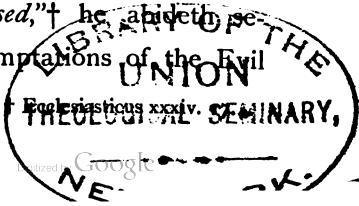 sed,”† he abideth se-
mptations of the Evil
† Ecclesiasticus xxxiv.
LIBRARY OF THE
UNION
THEOLOGICAL SEMINARY,
NEW YORK.
Digitized by Google